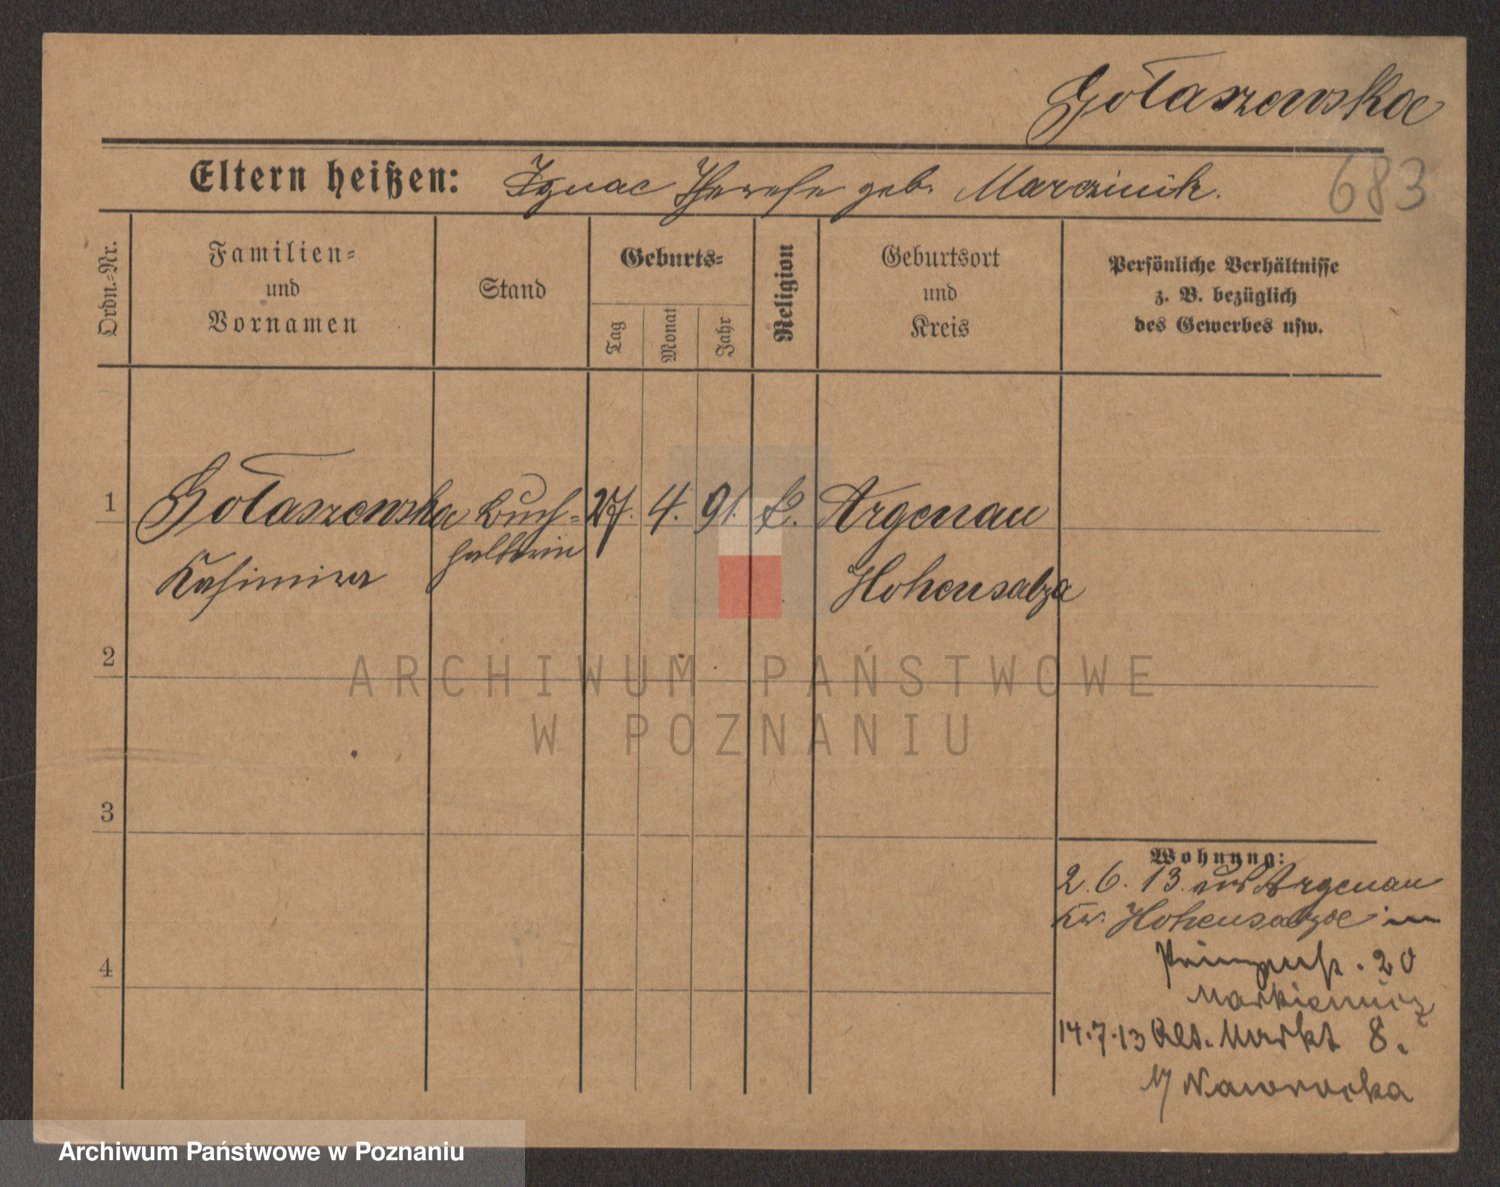 Gołaszewska
683
Eltern heißen: Ignac Therese geb. Marciniak.
Ordn.-Nr.
Familien=
und
Vornamen
Stand
Geburts=
Tag
Monat
Jahr
Religion
Geburtsort
und
Kreis
Persönliche Verhältnisse
z. B. bezüglich
des Gewerbes usw.
1 Gołaszewska Buch= 27. 4. 91. k. Argenau
Kasimira halterin Hohensalza
2
3
4
Wohnung:
2. 6. 13. aus Argenau
Kr. Hohensalza in
20
Markiewicz
14.7.13 Alt. Markt 8.
b/ Nawrocka
ARCHIWUM PAŃSTWOWE
W POZNANIU
Archiwum Państwowe w Poznaniu